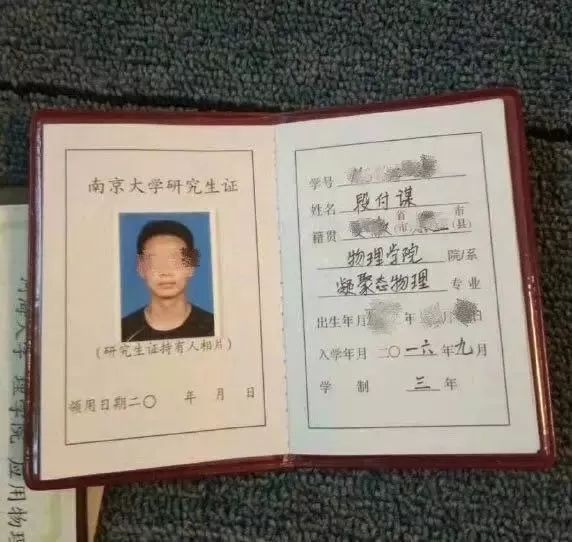 南京大学研究生证
(研究生证持有人相片)
领用日期二〇 年 月 日
学号
姓名 段付谋
籍贯 省市 市(县)
物理学院 院/系
凝聚态物理 专业
出生年月 年 月 日
入学年月 二〇一六年九月
学制 三年
河海大学 理学院 应用物理